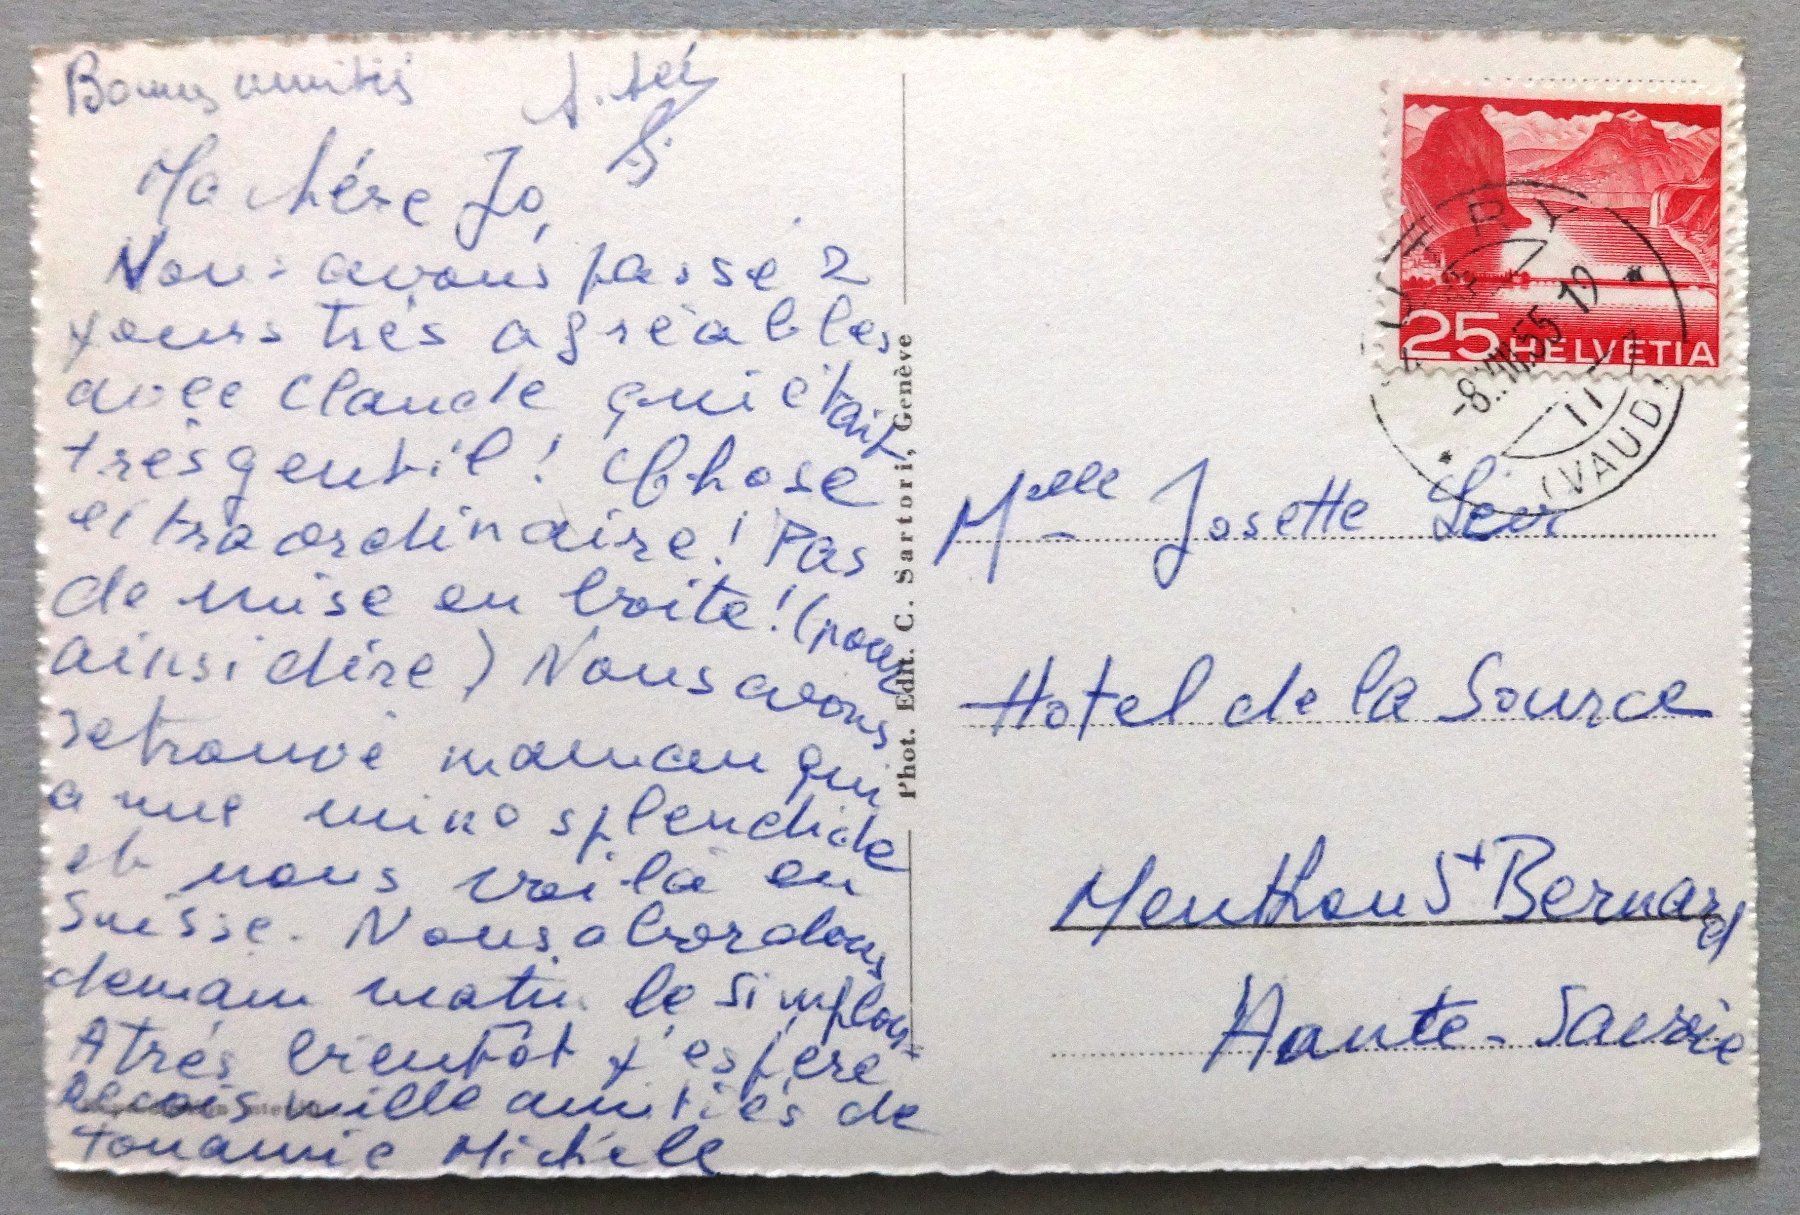 Bonnes amitiés
Ma chère Jo,
Nous avons passé 2
jours très agréables
avec Claude qui était
très gentil! Chose
extraordinaire! Pas
de mise en boite! (pour
ainsi dire) Nous avons
retrouvé maman qui
a une mine splendide
et nous voilà en
Suisse. Nous abordons
demain matin le Simplon.
A très bientôt j'espère
Reçois mille amitiés de
ton amie Michèle
Phot. Edit. C. Sartori, Genève
25 HELVETIA
-8.VIII.55 19
(VAUD)
Melle Josette
Hotel de la Source
Menthon St Bernard
Haute-Savoie